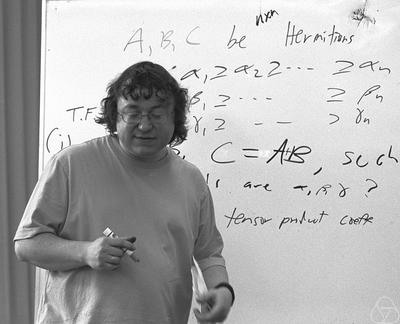 A, B, C be nxn Hermitions
α₁ ≥ α₂ ≥ ··· ≥ αₙ
β₁ ≥ ··· ≥ βₙ
T.F γ₁ ≥ -- > γₙ
(i) C = A+B, such
are α, β γ ?
tensor product coeff